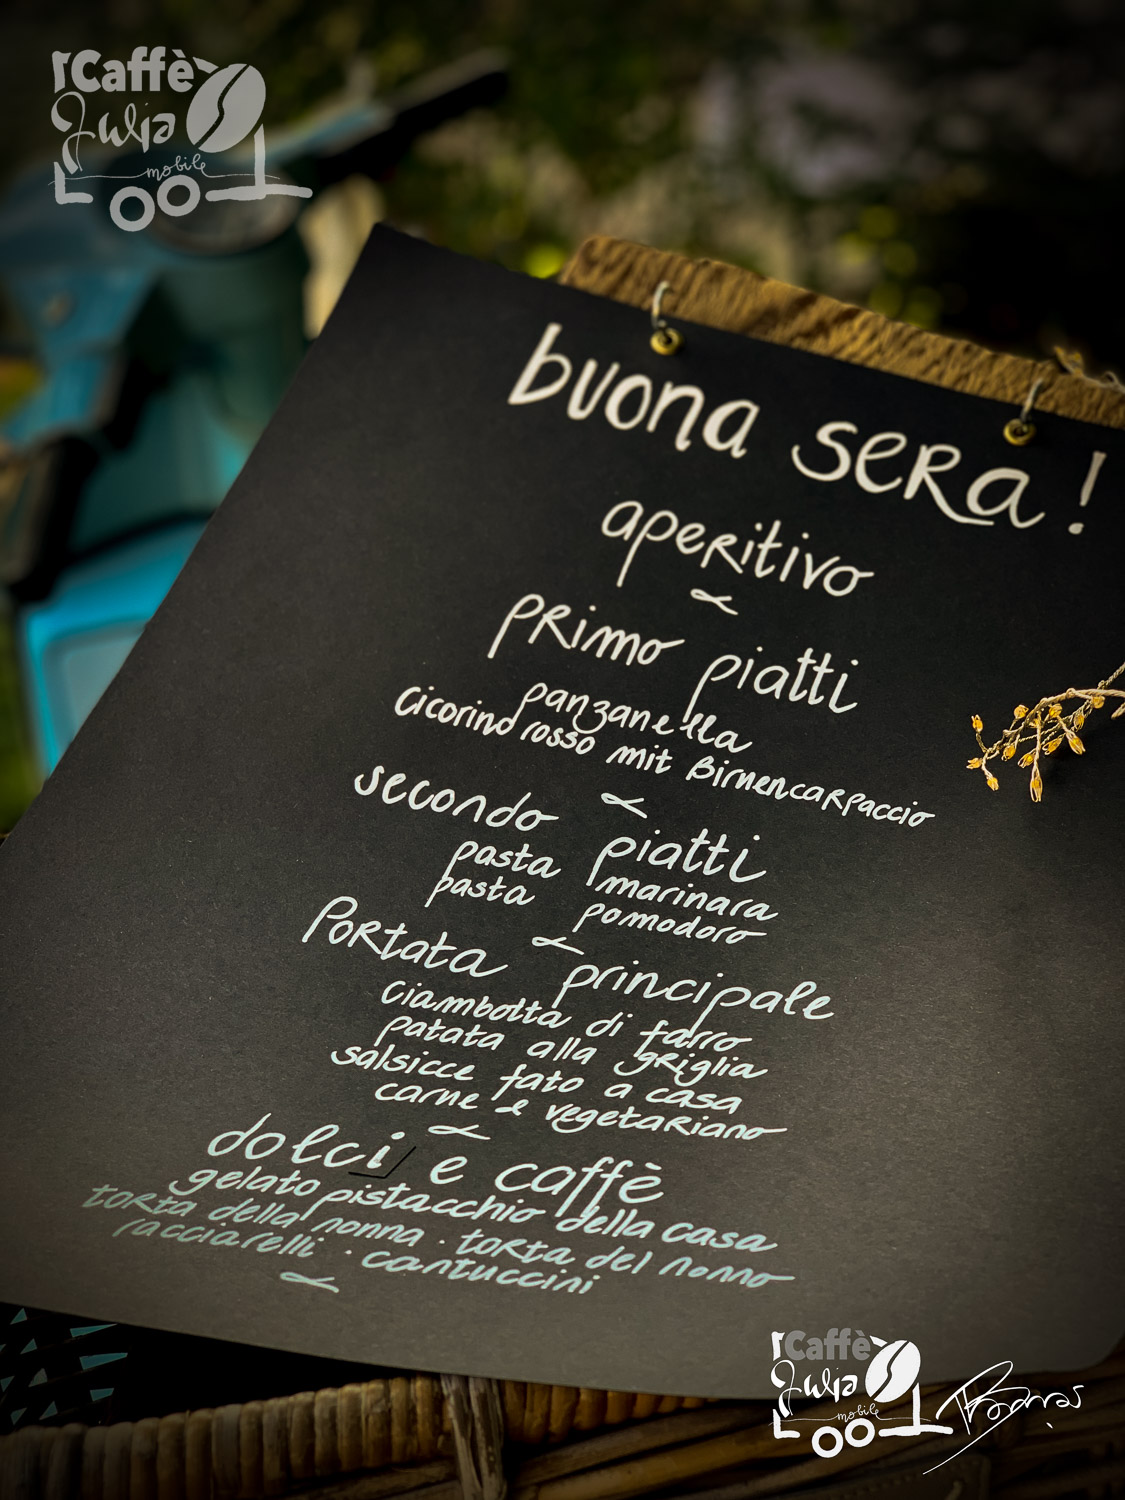 Caffè
Julia
mobile
buona sera!
aperitivo
primo piatti
panzanella
Cicorino rosso mit Birnencarpaccio
secondo piatti
pasta marinara
pasta pomodoro
Portata principale
Ciambotta di farro
patata alla griglia
salsicce fato a casa
carne e vegetariano
dolci e caffè
gelato pistacchio della casa
torta della nonna · torta del nonno
racciarelli · cantuccini
Caffè
Julia
mobile